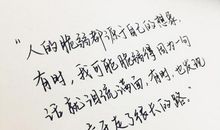 “人的脆弱都源于自己的想象，
有时，我可能脆弱得因为一句
话就泪流满面，有时，也发现
走了很长的路。